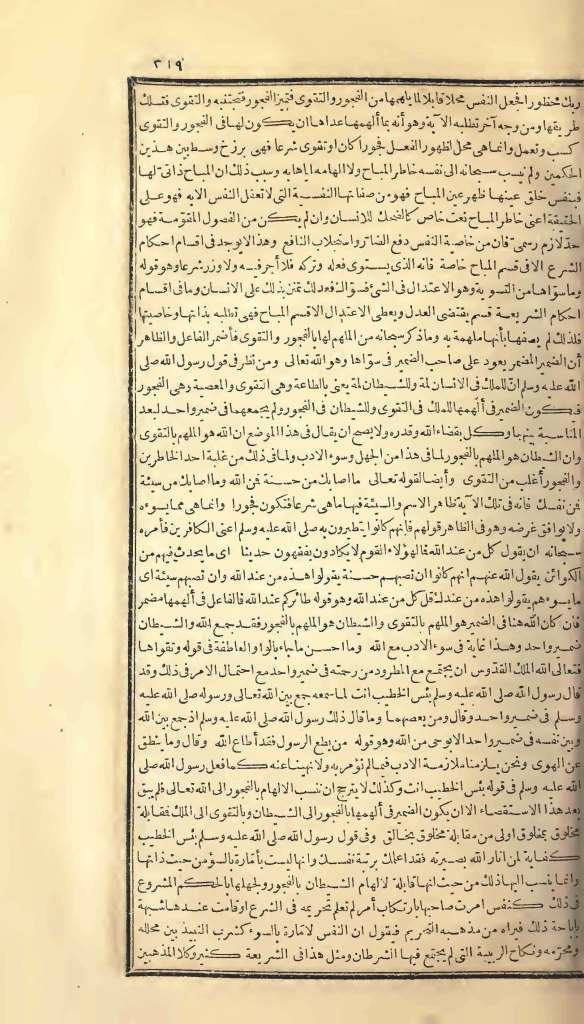 ٣١٩
ربك محظورا فجعل النفس محلا قابلا لما يلهمها من الفجور والتقوى فتميز الفجور فتجتنبه والتقوى فتسلك
طريقها ومن وجه آخر تطلبه الآية وهو أنه بما ألهمها عداها ان يكون لها فى الفجور والتقوى
كسب وتعمل وانما هى محل لظهور الفعل فجورا كان أو تقوى شرعا فهى برزخ وسط بين هذين
الحكمين ولم ينسب سبحانه الى نفسه خاطر المباح ولا الهامه اياها به وسبب ذلك ان المباح ذاتى لها
فبنفس خلق عينها ظهر عين المباح فهو من صفاتها النفسية التى لا تعقل النفس الا به فهو على
الحقيقة أعنى خاطر المباح نعت خاص كالضحك للانسان وان لم يكن من الفصول المقومة فهو
حد لازم رسمى فان من خاصية النفس دفع المضار واستجلاب المنافع وهذا لا يوجد فى اقسام احكام
الشرع الا فى قسم المباح خاصة فانه الذى يستوى فعله وتركه فلا أجر فيه ولا وزر شرعا وهو قوله
وما سوّاها من التسوية وهو الاعتدال فى الشئ فسوّاك فعدلك تمتن بذلك على الانسان وما فى اقسام
احكام الشريعة قسم يقتضى العدل ويعطى الاعتدال الا قسم المباح فهى تطلبه بذاتها وخاصيتها
فلذلك لم يصفها بأنها ملهمة به وما ذكر سبحانه من الملهم لها بالفجور والتقوى فأضمر الفاعل والظاهر
أن الضمير المضمر يعود على صاحب الضمير فى سوّاها وهو الله تعالى ومن نظر فى قول رسول الله صلى
الله عليه وسلم انّ للملك فى الانسان لمة وللشيطان لمة يعنى بالطاعة وهى التقوى والمعصية وهى الفجور
فيكون الضمير فى ألهمها للملك فى التقوى وللشيطان فى الفجور ولم يجمعهما فى ضمير واحد لبعد
المناسبة بينهما وكل بقضاء الله وقدره ولا يصح ان يقال فى هذا الموضع ان الله هو الملهم بالتقوى
وان الشيطان هو الملهم بالفجور لما فى هذا من الجهل وسوء الادب ولما فى ذلك من غلبة احد الخاطرين
والفجور أغلب من التقوى وأيضا لقوله تعالى ما اصابك من حسنة فمن الله وما اصابك من سيئة
فمن نفسك فانه فى تلك الآية ظاهر الاسم والسيئة فيها ما هى شرعا فتكون فجورا وانما هى مما يسوءه
ولا يوافق غرضه وهو فى الظاهر قولهم فانهم كانوا يتطيرون به صلى الله عليه وسلم اعنى الكافرين فأمره
سبحانه ان يقول كل من عند الله فما لهؤلاء القوم لا يكادون يفقهون حديثا اى ما يحدث فيهم من
الكوائن يقول الله عنهم انهم كانوا ان تصبهم حسنة يقولوا هذه من عند الله وان تصبهم سيئة اى
ما يسوءهم يقولوا هذه من عندك قل كل من عند الله وهو قوله طائركم عند الله فالفاعل فى ألهمها مضمر
فان كان الله هنا فى الضمير هو الملهم بالتقوى والشيطان هو الملهم بالفجور فقد جمع الله والشيطان
ضمير واحد وهذا غاية فى سوء الادب مع الله وما احسن ما جاء بالواو العاطفة فى قوله وتقواها
فتعالى الله الملك القدوس ان يجتمع مع المطرود من رحمته فى ضمير واحد مع احتمال الامر فى ذلك وقد
قال رسول الله صلى الله عليه وسلم بئس الخطيب انت لما سمعه جمع بين الله تعالى ورسوله صلى الله عليه
وسلم فى ضمير واحد وقال ومن يعصهما وما قال ذلك رسول الله صلى الله عليه وسلم اذ جمع بين الله
وبين نفسه فى ضمير واحد الا بوحى من الله وهو قوله من يطع الرسول فقد أطاع الله وقال وما ينطق
عن الهوى ونحن يلزمنا ملازمة الادب فيما لم نؤمر به ولا نهينا عنه كما فعل رسول الله صلى
الله عليه وسلم فى قوله بئس الخطيب انت وكذلك لا يترجح ان ننسب الالهام بالفجور الى الله تعالى فلم يبق
بعد هذا الاستقصاء الا ان يكون الضمير فى ألهمها بالفجور الى الشيطان وبالتقوى الى الملك فمقابلة
مخلوق بمخلوق اولى من مقابلة مخلوق بخالق وفى قول رسول الله صلى الله عليه وسلم بئس الخطيب
كفاية لمن انار الله بصيرته فقد اعلمك برتبة نفسك وانها ليست بأمّارة بالسوء من حيث ذاتها
وانما ينسب اليها ذلك من حيث انها قابلة لالهام الشيطان بالفجور ولجهلها بالحكم المشروع
فى ذلك كنفس امرت صاحبها بارتكاب أمر لم تعلم تحريمه فى الشرع او قامت عندها شبهة
باباحة ذلك فيراه من مذهبه التحريم فيقول ان النفس لامّارة بالسوء كشرب النبيذ بين محلله
ومحرّمه ونكاح الربيبة التى لم يجتمع فيها الشرطان ومثل هذا فى الشريعة كثير وكلا المذهبين